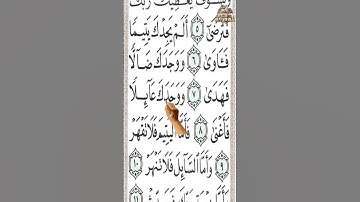 ولسوف يعطيك ربك
فَتَرْضَىٰ ٥ أَلَمْ يَجِدْكَ يَتِيمًا
فَـَٔاوَىٰ ٦ وَوَجَدَكَ ضَآلًّا
فَهَدَىٰ ٧ وَوَجَدَكَ عَآئِلًا
فَأَغْنَىٰ ٨ فَأَمَّا ٱلْيَتِيمَ فَلَا تَقْهَرْ
٩ وَأَمَّا ٱلسَّآئِلَ فَلَا تَنْهَرْ ١٠
وَأَمَّا بِنِعْمَةِ رَبِّكَ فَحَدِّثْ ١١